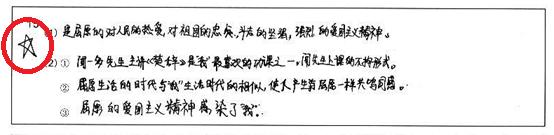 15(1) 是屈原的对人民的热爱,对祖国的忠贞,斗志的坚强,强烈的爱国主义精神。
(2)① 闻一多先生主讲《楚辞》是我最喜欢的功课之一,闻先生上课的不拘形式。
② 屈原生活的时代与“我”生活时代的相似,使人产生与屈原一样共鸣同感。
③ 屈原的爱国主义精神感染了我。